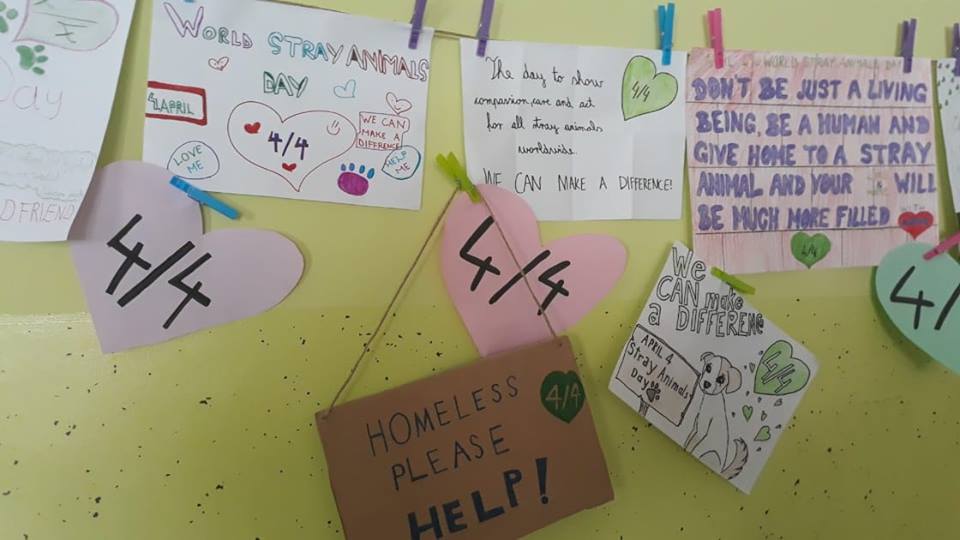 Day
DFRIEND
WORLD STRAY ANIMALS
DAY
4 APRIL
4/4
WE CAN
MAKE A
DIFFERENCE
LOVE
ME
HELP
ME
4/4
The day to show
compassion, care and act
for all stray animals
worldwide.
WE CAN MAKE A DIFFERENCE!
4/4
4/4
WORLD STRAY ANIMALS DAY
DON'T BE JUST A LIVING
BEING, BE A HUMAN AND
GIVE HOME TO A STRAY
ANIMAL AND YOUR WILL
BE MUCH MORE FILLED WITH
4/4
4/
We
CAN make
a DIFFERENCE
APRIL 4
Stray Animals
Day
4/4
HOMELESS
PLEASE
HELP!
4/4